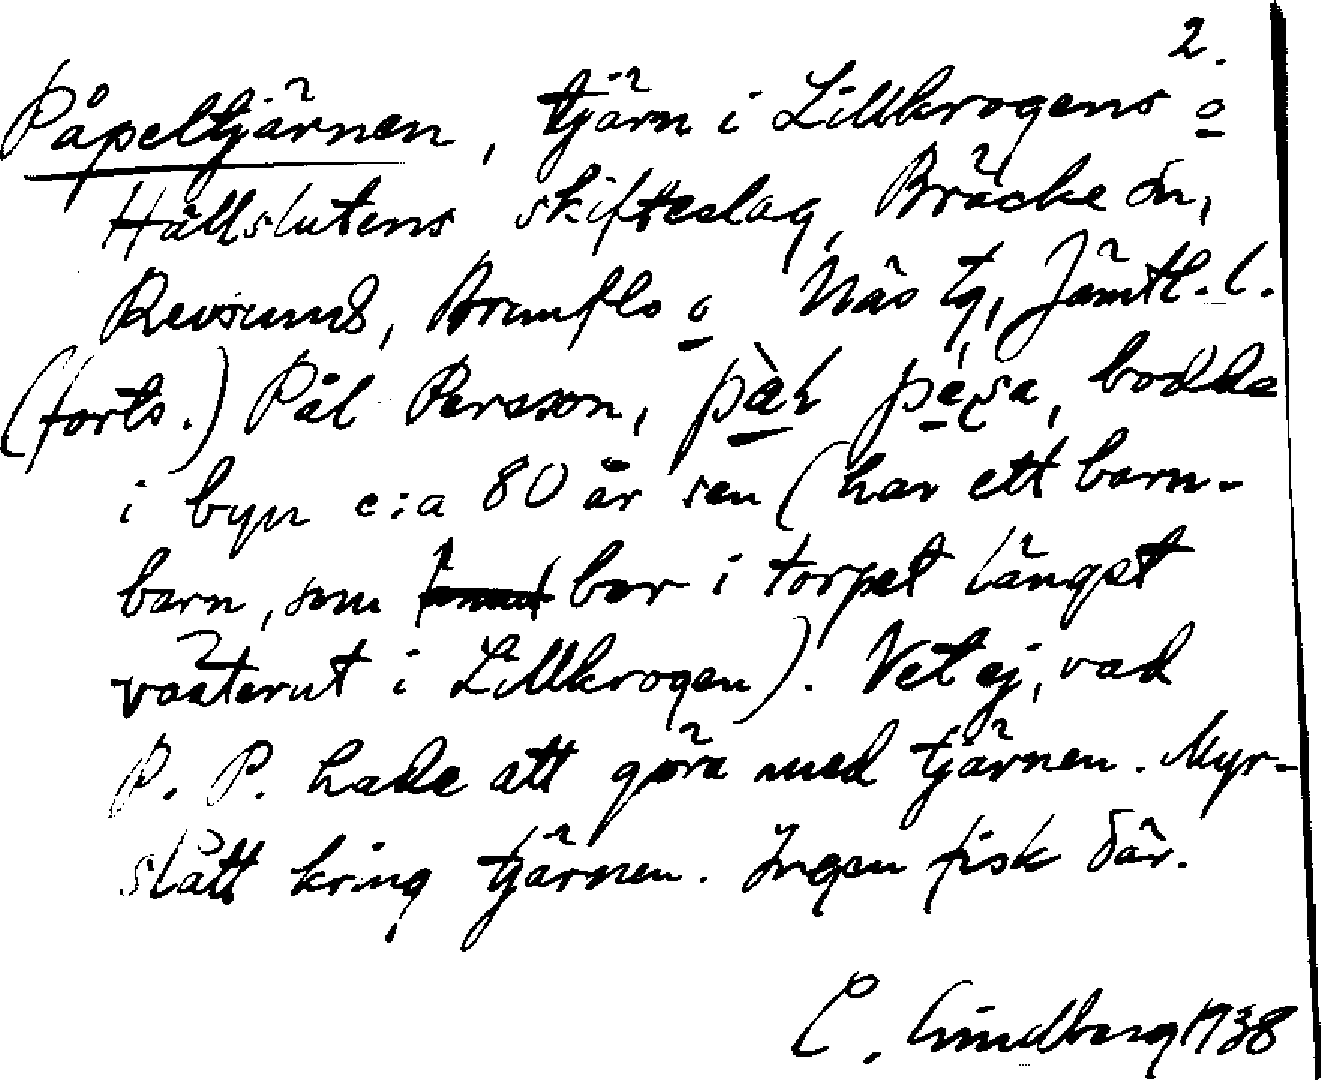 2.
Påpeltjärnen, tjärn i Lillkrogens o
Hällslutens skifteslag, Bräcke sn,
Revsunds, Brunflo o Näs tg, Jämtl. l.
(forts.) Pål Persson, bodde
i byn c:a 80 år sen (har ett barn-
barn, som bor i torpet längst
västerut i Lillkrogen). Vet ej, vad
P. P. hade att göra med tjärnen. Myr-
slått kring tjärnen. Ingen fisk där.
C. Lindberg 1938